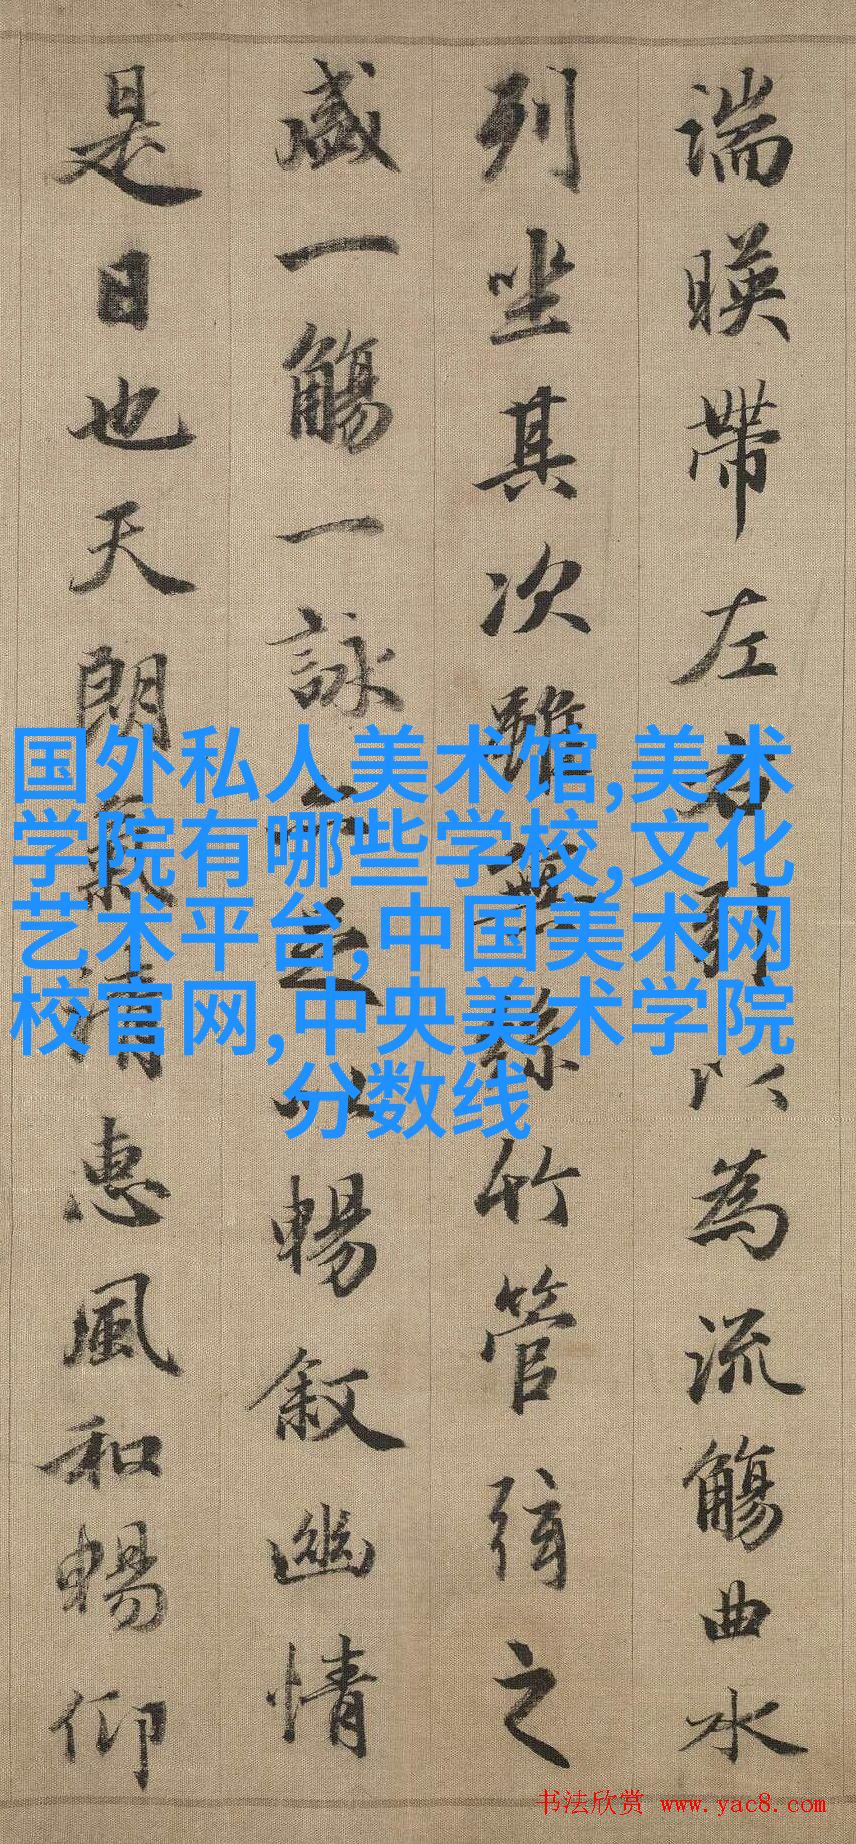 湍暎帶左右引以為流觴曲水
列坐其次雖無絲竹管弦之
盛一觴一詠亦足以暢叙幽情
是日也天朗氣清惠風和暢仰
国外私人美术馆,美术
学院有哪些学校,文化
艺术平台,中国美术网
校官网,中央美术学院
分数线
书法欣赏 www.yac8.com